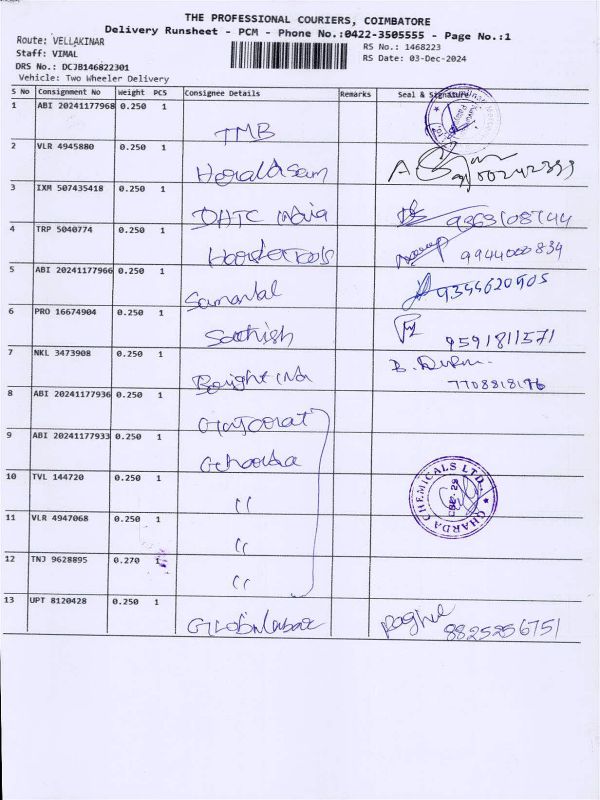 THE PROFESSIONAL COURIERS, COIMBATORE
Delivery Runsheet - PCM - Phone No.:0422-3505555 - Page No.:1
Route: VELLAKINAR
RS No.: 1468223
Staff: VIMAL
RS Date: 03-Dec-2024
DRS No.: DCJB146822301
Vehicle: Two Wheeler Delivery
S No Consignment No Weight PCS Consignee Details Remarks Seal & Signature
1 ABI 20241177968 0.250 1 TMB
2 VLR 4945880 0.250 1
3 IXM 507435418 0.250 1 DHTC India
4 TRP 5040774 0.250 1 9944000834
5 ABI 20241177966 0.250 1 9344620505
6 PRO 16674904 0.250 1 Sathish 9591811571
7 NKL 3473908 0.250 1 Bright
8 ABI 20241177936 0.250 1
9 ABI 20241177933 0.250 1
10 TVL 144720 0.250 1 "
GHARDA CHEMICALS LTD.
11 VLR 4947068 0.250 1 "
12 TNJ 9628895 0.270 1 "
13 UPT 8120428 0.250 1 8825256751